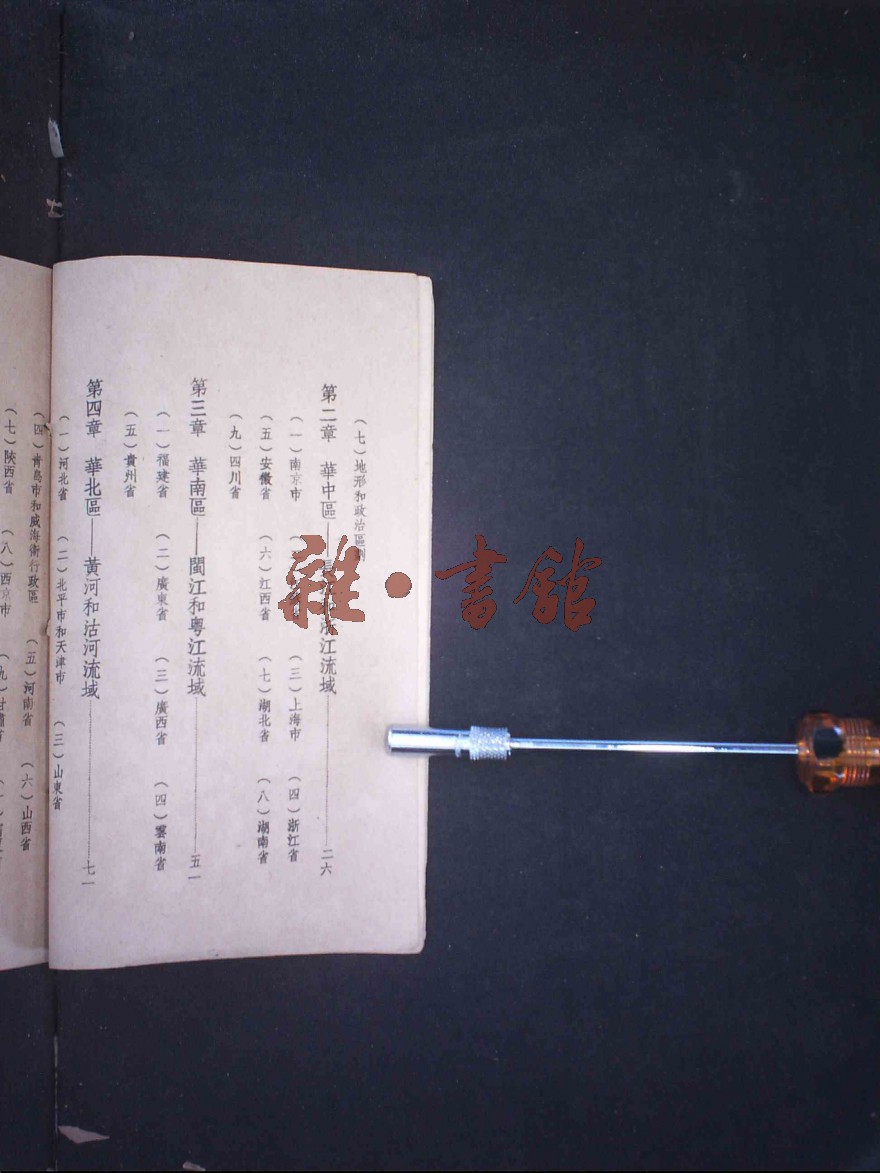 (七)地形和政治區劃
第二章　華中區——長江和浙江流域　二六
(一)南京市　(三)上海市　(四)浙江省
(五)安徽省　(六)江西省　(七)湖北省　(八)湖南省
(九)四川省
第三章　華南區——閩江和粵江流域　五一
(一)福建省　(二)廣東省　(三)廣西省　(四)雲南省
(五)貴州省
第四章　華北區——黃河和沽河流域　七一
(一)河北省　(二)北平市和天津市　(三)山東省
(四)青島市和威海衛行政區　(五)河南省　(六)山西省
(七)陝西省　(八)西京市　(九)甘肅省
雜·書館